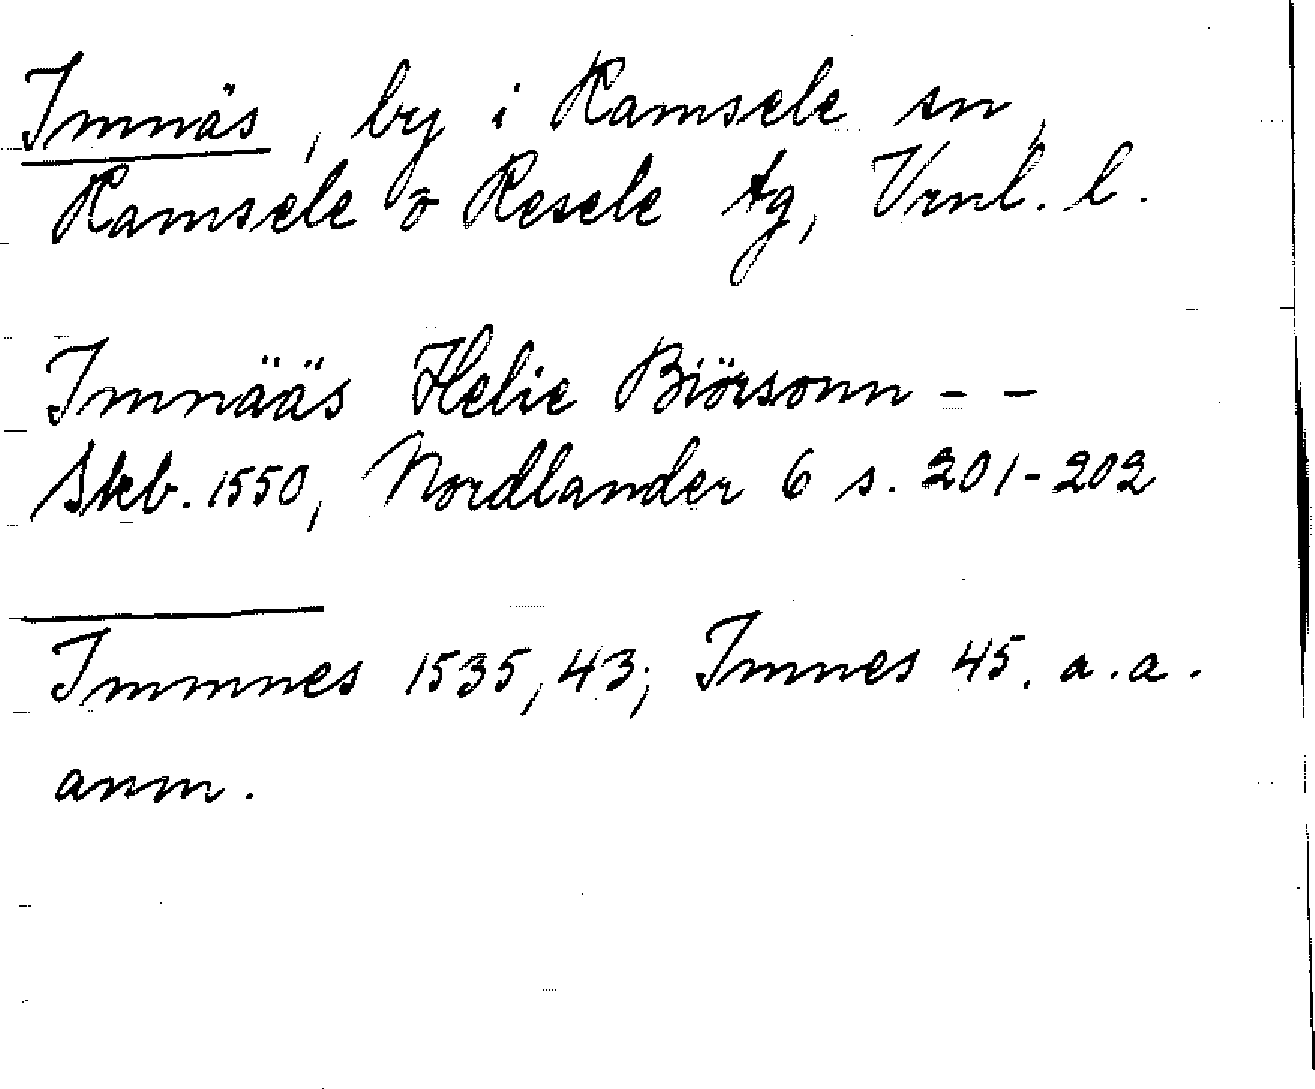 Imnäs, by i Ramsele sn,
Ramsele o Resele tg, Vrnl. l.
Imnääs Helie Biörsonn - -
Skb. 1550, Nordlander 6 s. 201-202
Immnes 1535, 43; Imnes 45. a.a.
anm.